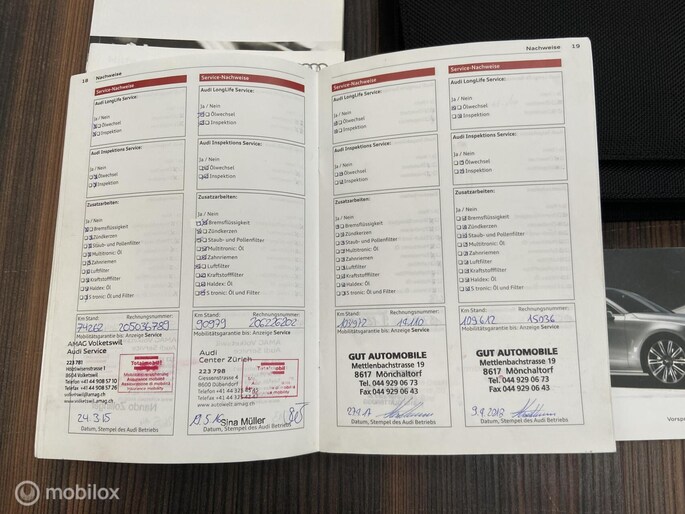 18 Nachweise
Service-Nachweise
Audi LongLife Service:
Ja / Nein
Ölwechsel
Inspektion
Audi Inspektions Service:
Ja / Nein
Ölwechsel
Inspektion
Zusatzarbeiten:
Ja / Nein
Bremsflüssigkeit
Zündkerzen
Staub- und Pollenfilter
Multitronic: Öl
Zahnriemen
Luftfilter
Kraftstofffilter
Haldex: Öl
S tronic: Öl und Filter
Km Stand: Rechnungsnummer:
74262 205036789
Mobilitätsgarantie bis: Anzeige Service
AMAG Volketswil
Audi Service
223 781
8604 Volketswil
Telefon +41 44 908 57 10
Telefax +41 44 908 57 26
volketswil@amag.ch
www.volketswil.amag.ch
Totalmobil
24.3.15
Datum, Stempel des Audi Betriebs
Service-Nachweise
Audi LongLife Service:
Ja / Nein
Ölwechsel
Inspektion
Audi Inspektions Service:
Ja / Nein
Ölwechsel
Inspektion
Zusatzarbeiten:
Ja / Nein
Bremsflüssigkeit
Zündkerzen
Staub- und Pollenfilter
Multitronic: Öl
Zahnriemen
Luftfilter
Kraftstofffilter
Haldex: Öl
S tronic: Öl und Filter
Km Stand: Rechnungsnummer:
90979 206226202
Mobilitätsgarantie bis: Anzeige Service
Audi
Center Zürich
223 798
8600 Dübendorf
Telefon +41 44 325
Telefax +41 44 325
www.autowelt.amag.ch
Totalmobil
Sina Müller
Datum, Stempel des Audi Betriebs
Nachweise 19
Service-Nachweise
Audi LongLife Service:
Ja / Nein
Ölwechsel
Inspektion
Audi Inspektions Service:
Ja / Nein
Ölwechsel
Inspektion
Zusatzarbeiten:
Ja / Nein
Bremsflüssigkeit
Zündkerzen
Staub- und Pollenfilter
Multitronic: Öl
Zahnriemen
Luftfilter
Kraftstofffilter
Haldex: Öl
S tronic: Öl und Filter
Km Stand: Rechnungsnummer:
Mobilitätsgarantie bis: Anzeige Service
GUT AUTOMOBILE
Mettlenbachstrasse 19
8617 Mönchaltorf
Tel. 044 929 06 73
Fax 044 929 06 43
Datum, Stempel des Audi Betriebs
Service-Nachweise
Audi LongLife Service:
Ja / Nein
Ölwechsel
Inspektion
Audi Inspektions Service:
Ja / Nein
Ölwechsel
Inspektion
Zusatzarbeiten:
Ja / Nein
Bremsflüssigkeit
Zündkerzen
Staub- und Pollenfilter
Multitronic: Öl
Zahnriemen
Luftfilter
Kraftstofffilter
Haldex: Öl
S tronic: Öl und Filter
Km Stand: Rechnungsnummer:
109612 15036
Mobilitätsgarantie bis: Anzeige Service
GUT AUTOMOBILE
Mettlenbachstrasse 19
8617 Mönchaltorf
Tel. 044 929 06 73
Fax 044 929 06 43
Datum, Stempel des Audi Betriebs
mobilox